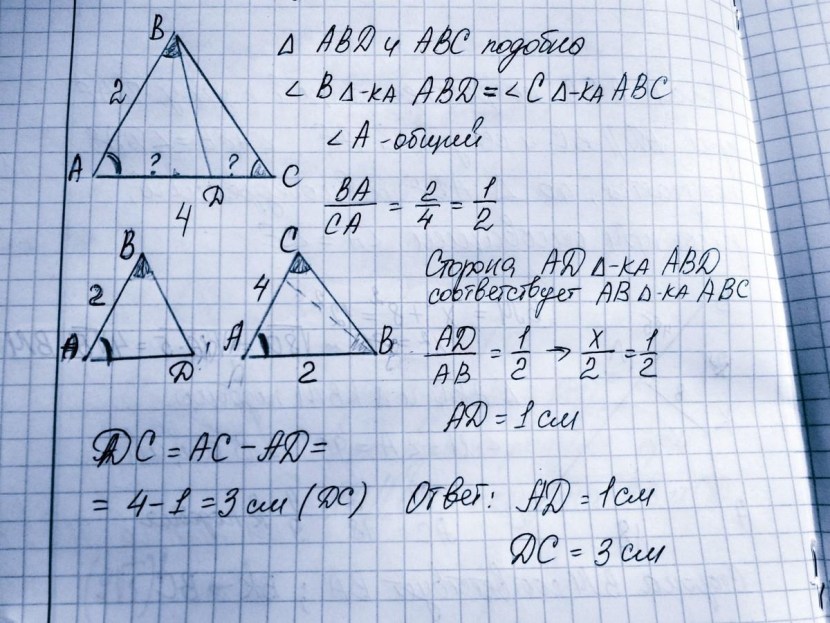 B
2
A ? ? C
D
4
Δ ABD и ABC подобно
∠ B Δ-ка ABD = ∠ C Δ-ка ABC
∠ A - общий
BA/CA = 2/4 = 1/2
B
2
A D
C
4
A B
2
Сторона AD Δ-ка ABD
соответствует AB Δ-ка ABC
AD/AB = 1/2 → x/2 = 1/2
AD = 1 см
DC = AC - AD =
= 4 - 1 = 3 см (DC)
Ответ: AD = 1 см
DC = 3 см